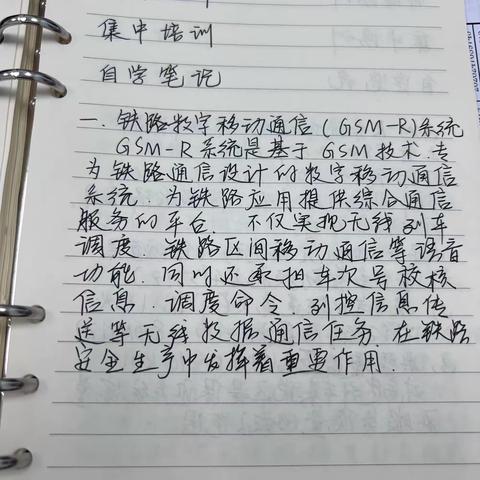 集中培训
自学笔记
一. 铁路数字移动通信(GSM-R)系统
GSM-R系统是基于GSM技术、专
为铁路通信设计的数字移动通信
系统. 为铁路应用提供综合通信
服务的平台. 不仅实现无线列车
调度. 铁路区间移动通信等语音
功能. 同时还承担车次号校核
信息. 调度命令. 列控信息传
送等无线数据通信任务. 在铁路
安全生产中发挥着重要作用.